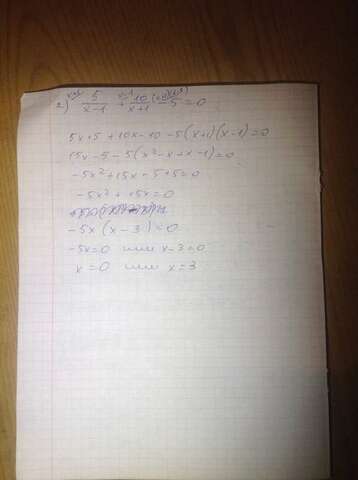 2) 5/(x-1) + 10/(x+1) - 5 = 0
5x+5+10x-10-5(x+1)(x-1)=0
15x-5-5(x²-x+x-1)=0
-5x²+15x-5+5=0
-5x²+15x=0
-5x(x-3)=0
-5x=0 или x-3=0
x=0 или x=3